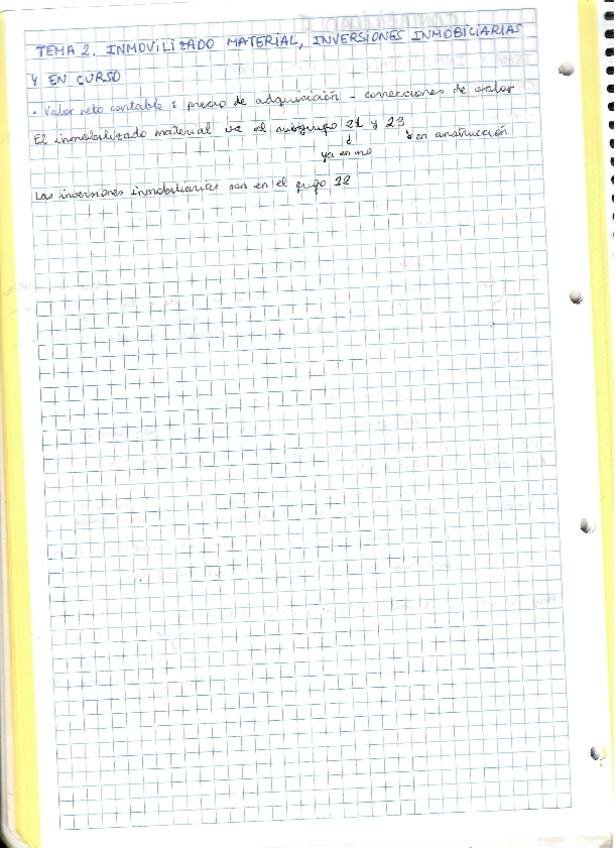 TEMA 2. INMOVILIZADO MATERIAL, INVERSIONES INMOBILIARIAS
Y EN CURSO
• Valor neto contable: precio de adquisición - correcciones de valor
El inmobilizado material va al subgrupo 21 y 23
en construcción
ya en uso
Las inversiones inmobiliarias van en el grupo 22